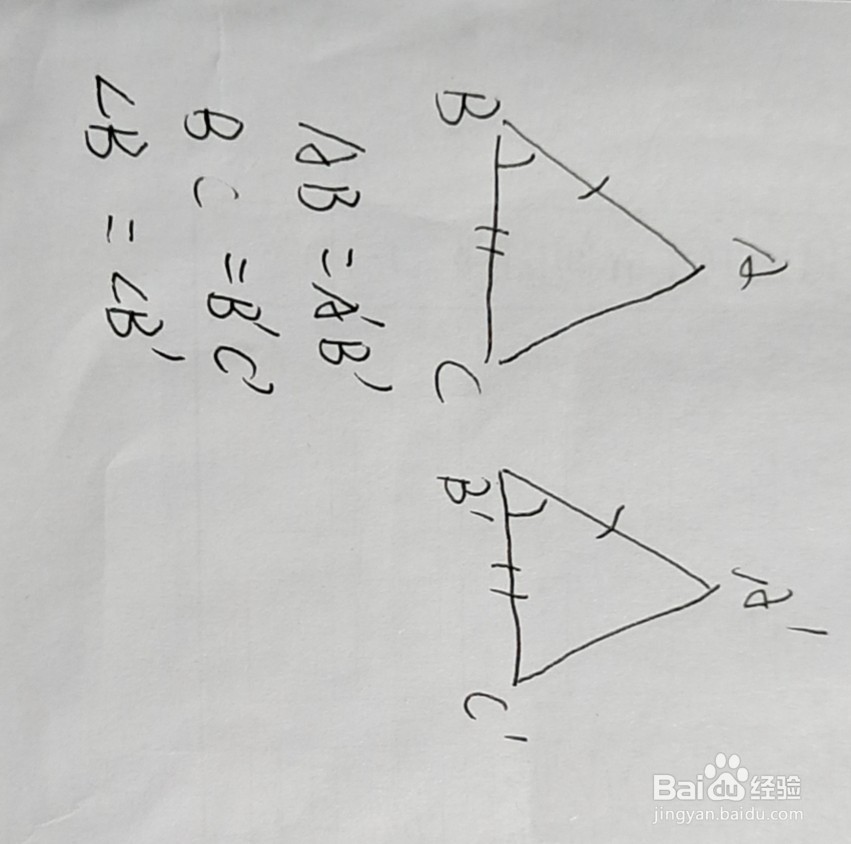 A
A'
B
C
B'
C'
AB = A'B'
BC = B'C'
∠B = ∠B'
Baidu经验
jingyan.baidu.com